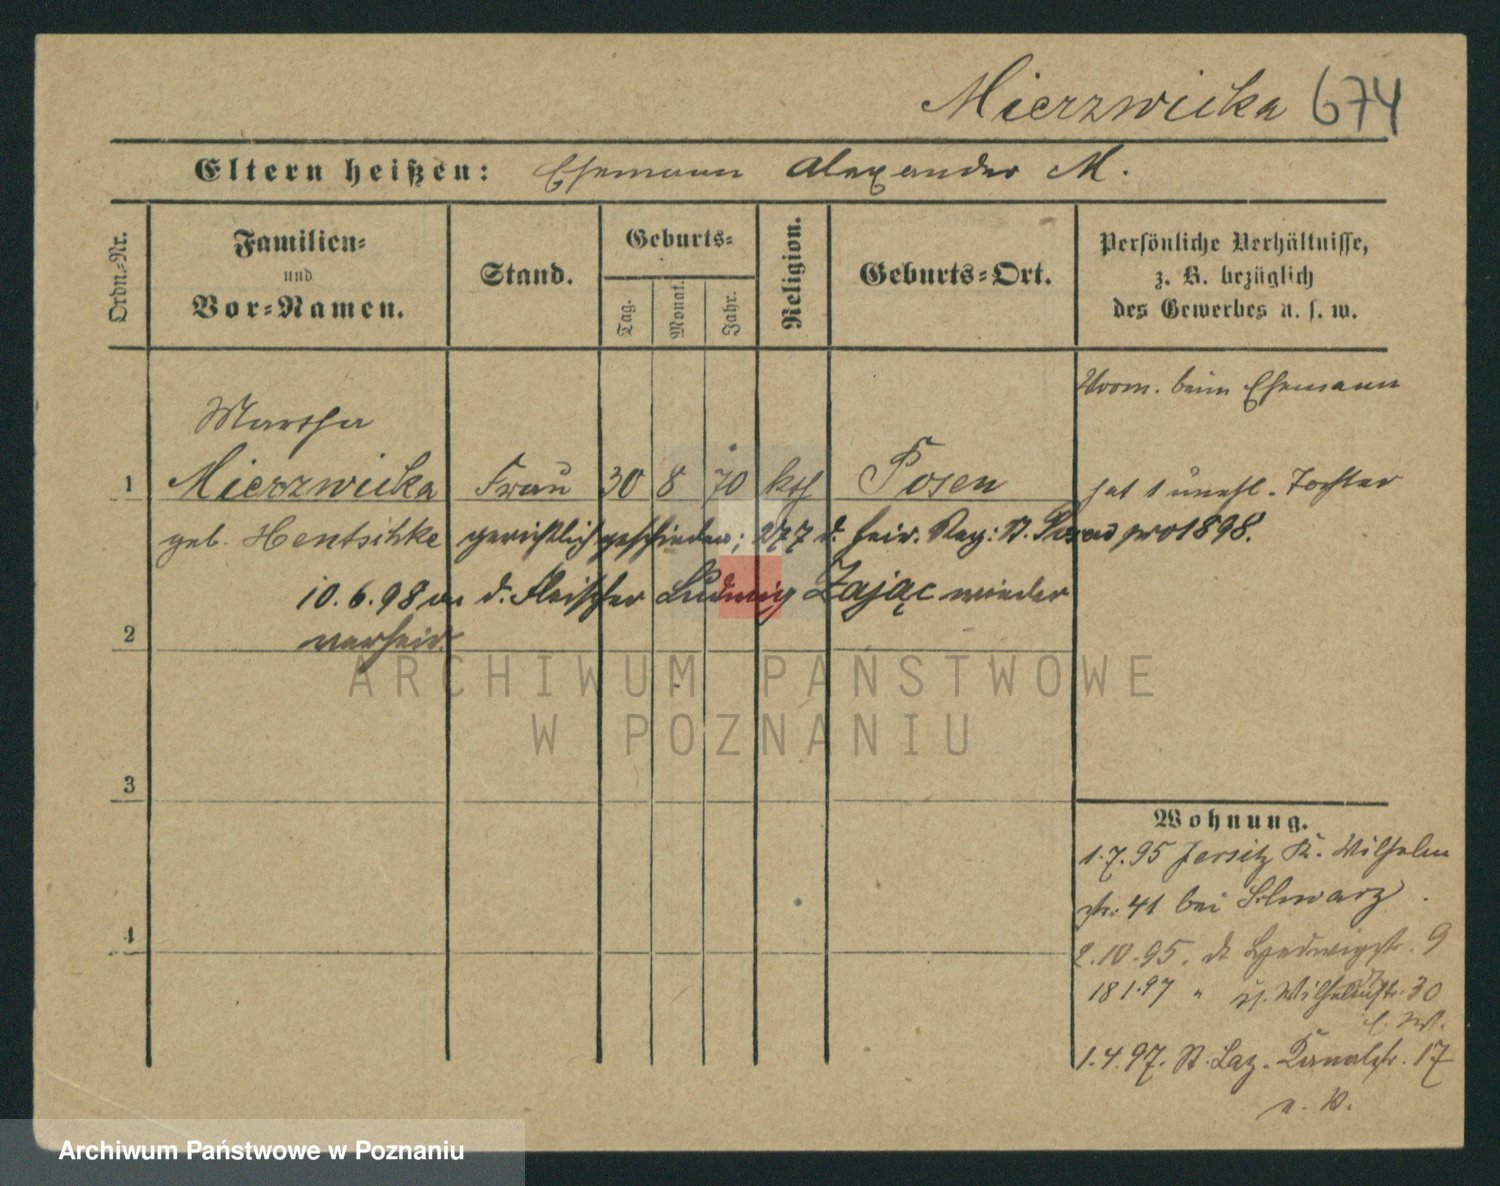 Mierzwicka 674
Eltern heißen: Ehemann Alexander M.
Ordn.-Nr.
Familien-
und
Vor-Namen.
Stand.
Geburts-
Tag.
Monat.
Jahr.
Religion.
Geburts-Ort.
Persönliche Verhältnisse,
z. B. bezüglich
des Gewerbes u. s. w.
Vorm. beim Ehemann
Martha
1 Mierzwicka Frau 30 8 70 kth Posen hat 1 unehl. Tochter
geb. Hentschke gerichtlich geschieden; 277 d. heir. Reg: St. Posen pro 1898.
10.6.98 an d. Fleischer Ludwig Zając wieder
2 verheir.
ARCHIWUM PAŃSTWOWE
W POZNANIU
3
4
Wohnung.
1.7.95 Jersitz K. Wilhelm
str. 41 bei Schwarz
2.10.95. dt Hedwigstr. 9
18 1.97 " Wilhelmstr. 30
1.4.97. St. Laz. Kanalstr. 17
Archiwum Państwowe w Poznaniu